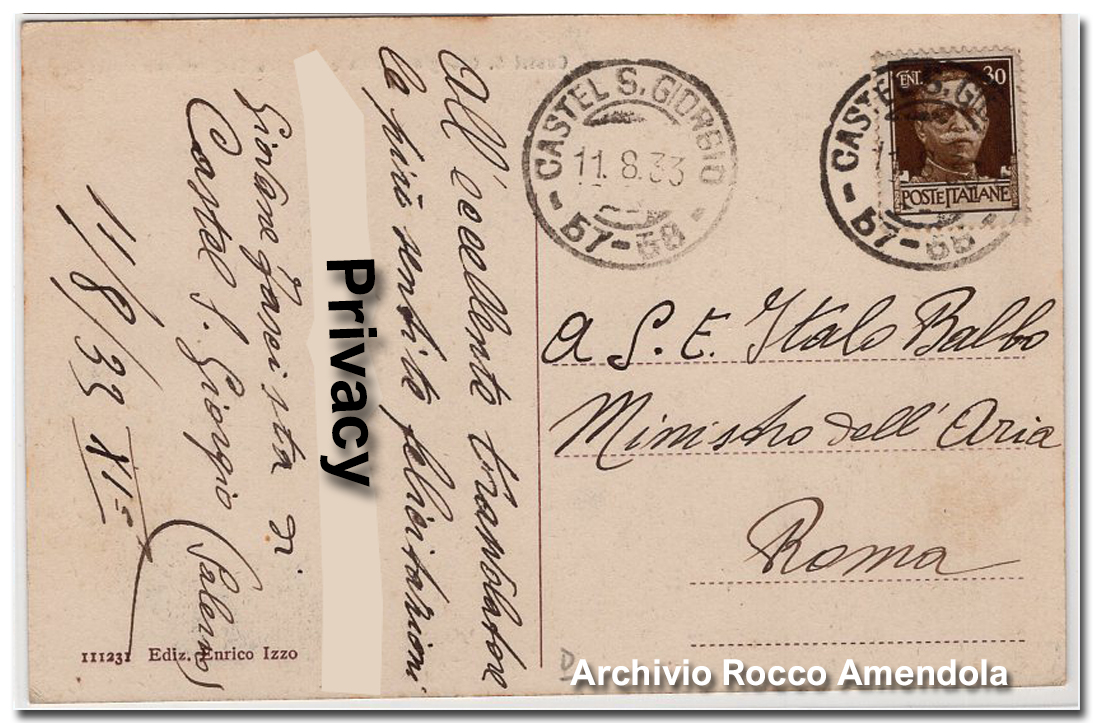 All'eccellente trasvolatore
le più sentite felicitazioni
Privacy
Giovane fascista di
Castel S. Giorgio (Salerno)
11/8/33 XI°
111231 Ediz. Enrico Izzo
CASTEL S. GIORGIO
11.8.33
57-68
CENT. 30
POSTE ITALIANE
CASTEL S. GI
57-68
A S. E. Italo Balbo
Ministro dell'Aria
Roma
Archivio Rocco Amendola